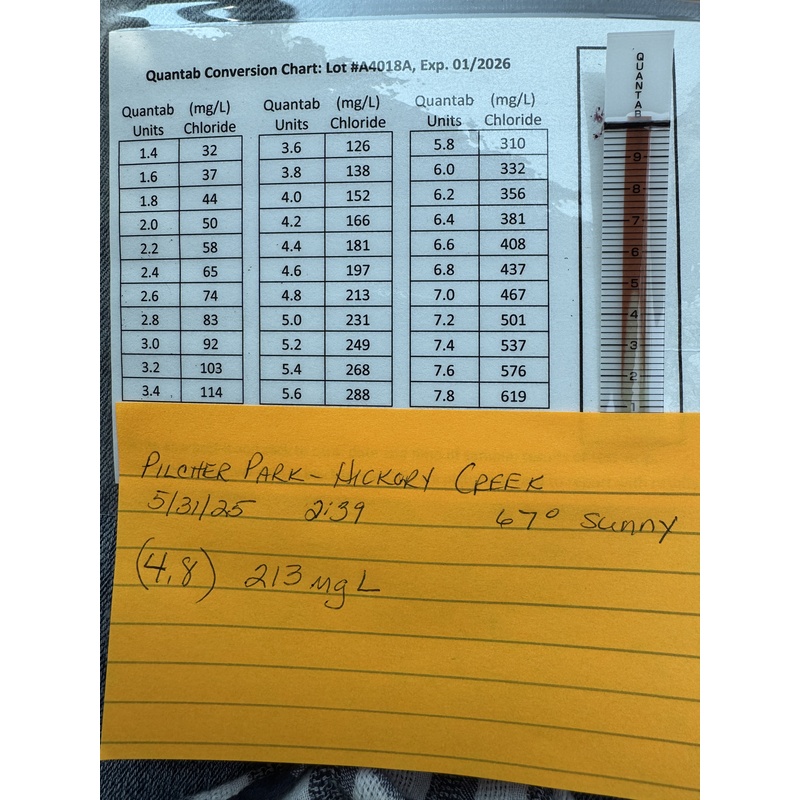 Quantab Conversion Chart: Lot #A4018A, Exp. 01/2026
Quantab Units (mg/L) Chloride Quantab Units (mg/L) Chloride Quantab Units (mg/L) Chloride
1.4 32 3.6 126 5.8 310
1.6 37 3.8 138 6.0 332
1.8 44 4.0 152 6.2 356
2.0 50 4.2 166 6.4 381
2.2 58 4.4 181 6.6 408
2.4 65 4.6 197 6.8 437
2.6 74 4.8 213 7.0 467
2.8 83 5.0 231 7.2 501
3.0 92 5.2 249 7.4 537
3.2 103 5.4 268 7.6 576
3.4 114 5.6 288 7.8 619
QUANTAB
9
8
7
6
5
4
3
2
1
PILCHER PARK - HICKORY CREEK
5/31/25 2:39 67° Sunny
(4.8) 213 mg L